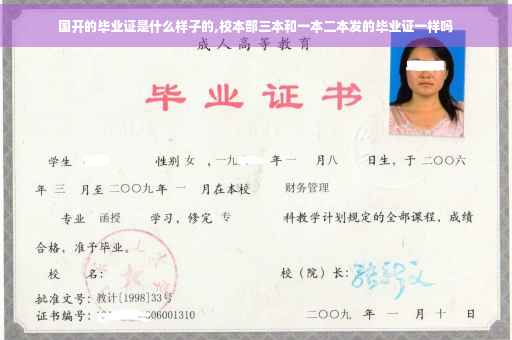 国开的毕业证是什么样子的,校本部三本和一本二本发的毕业证一样吗
成人高等教育
毕业证书
学生 性别 女 ，一九 年 一 月八 日生，于 二〇〇六
年 三 月至 二〇〇九 年 一 月在本校 财务管理
专业 函授 学习，修完 专 科教学计划规定的全部课程，成绩
合格，准予毕业。
校 名： 校（院）长：
批准文号：教计[1998]33号
证书编号： 06001310 二〇〇九 年 一 月 十 日